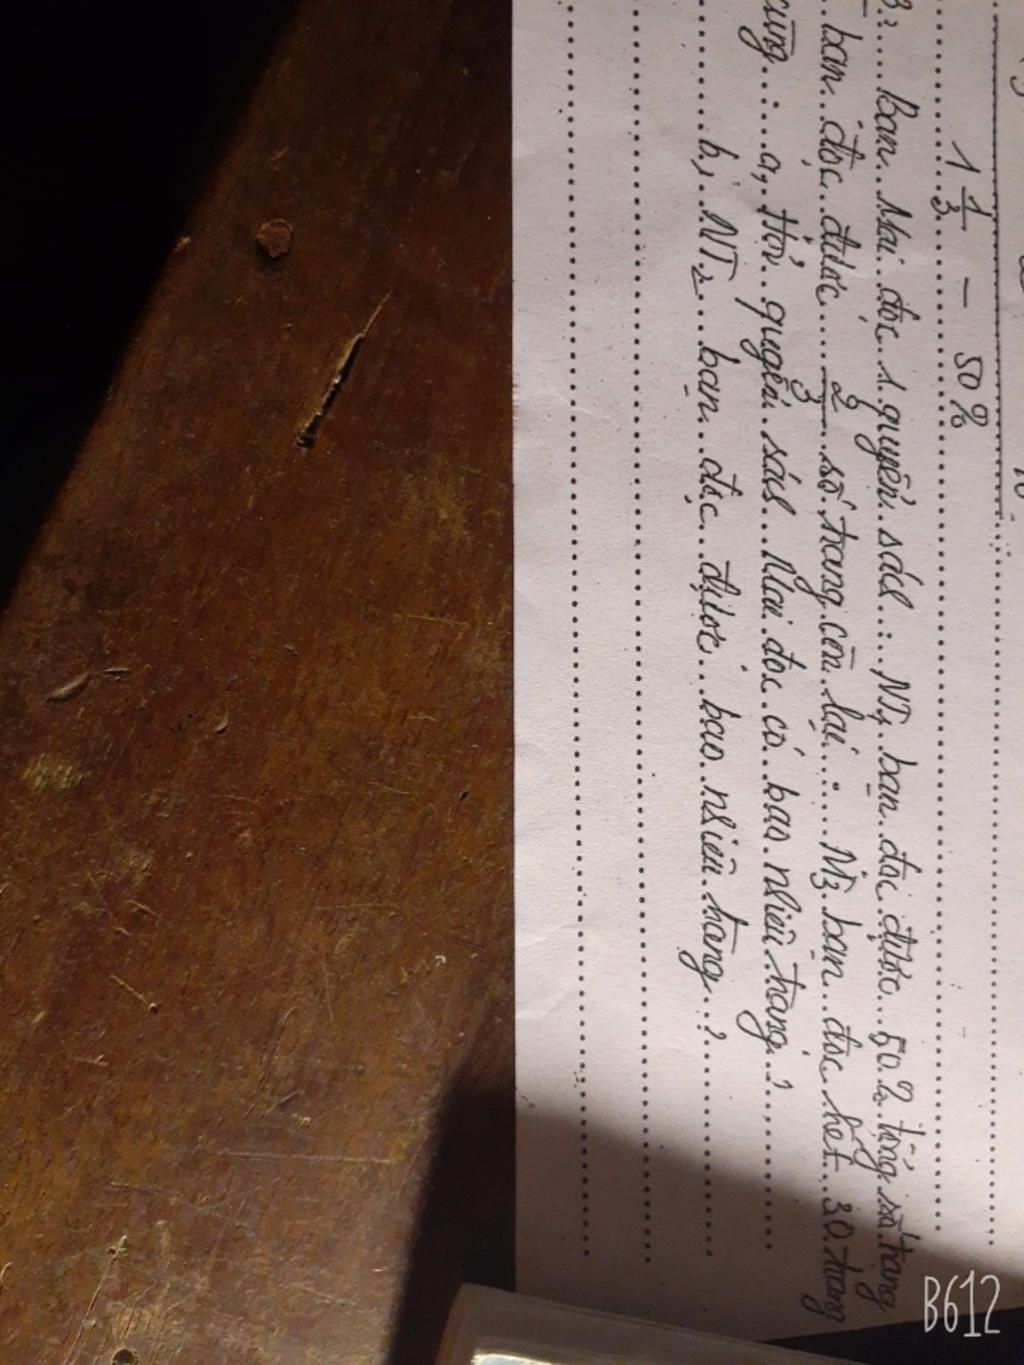 1 1/3 - 50%
3: Bạn Mai đọc 1 quyển sách: NT1 bạn đọc được 50% tổng số trang
bạn đọc được 2/3 số trang còn lại: N3 bạn đọc hết 30 trang
cùng: a, Hỏi quyển sách Mai đọc có bao nhiêu trang?
b, NT2 bạn đọc được bao nhiêu trang?
B612